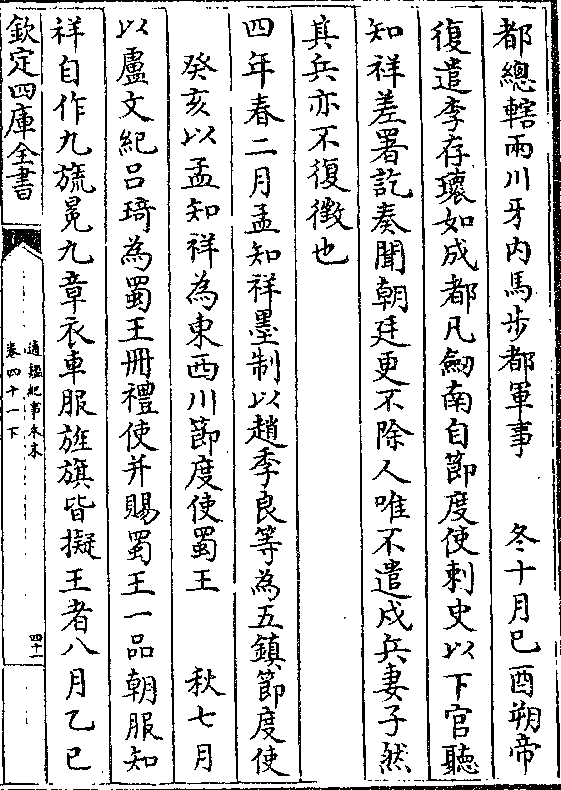 都總轄兩川牙内馬步都軍事　　冬十月已酉朔帝
復遣李存瓌如成都凡劒南自節度使刺史以下官聽
知祥差署訖奏聞朝廷更不除人唯不遣戍兵妻子然
其兵亦不復徵也
四年春二月孟知祥墨制以趙季良等為五鎮節度使
癸亥以孟知祥為東西川節度使蜀王　　秋七月
以盧文紀吕琦為蜀王冊禮使并賜蜀王一品朝服知
祥自作九旒冕九章衣車服旌旗皆擬王者八月乙已
欽定四庫全書
通鑑紀事本末
卷四十一下
四十一